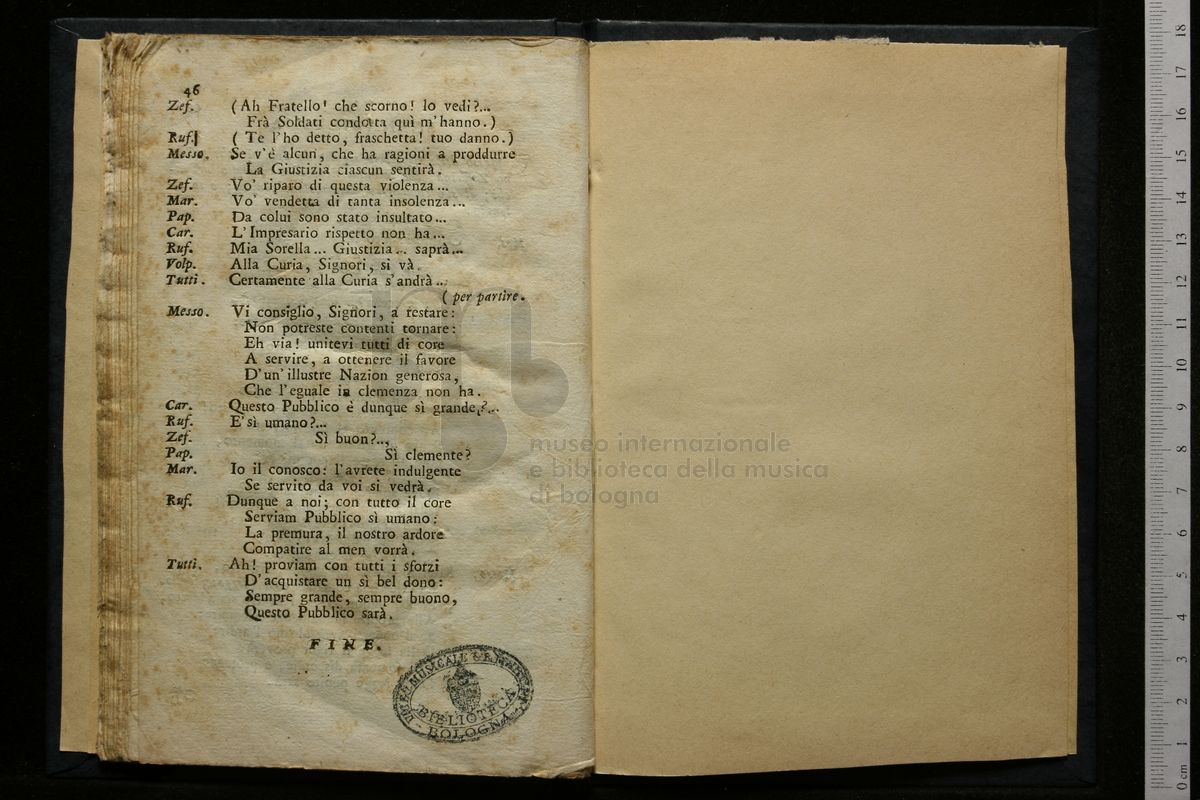 46
Zef. (Ah Fratello! che scorno! lo vedi?...
Frà Soldati condotta quì m'hanno.)
Ruf. (Te l'ho detto, fraschetta! tuo danno.)
Messo. Se v'è alcun, che ha ragioni aproddurre
La Giustizia ciascun sentirà.
Zef. Vo' riparo di questa violenza...
Mar. Vo' vendetta di tanta insolenza...
Pap. Da colui sono stato insultato...
Car. L'Impresario rispetto non ha...
Ruf. Mia Sorella... Giustizia... saprà...
Volp. Alla Curia, Signori, si và.
Tutti. Certamente alla Curia s'andrà...
(per partire.
Messo. Vi consiglio, Signori, a restare:
Non potreste contenti tornare:
Eh via! unitevi tutti di core
A servire, a ottenere il favore
D'un'illustre Nazion generosa,
Che l'eguale in clemenza non ha.
Car. Questo Pubblico è dunque sì grande?...
Ruf. E' sì umano?...
Zef. Sì buon?...
Pap. Sì clemente?
Mar. Io il conosco: l'avrete indulgente
Se servito da voi si vedrà.
Ruf. Dunque a noi; con tutto il core
Serviam Pubblico sì umano:
La premura, il nostro ardore
Compatire al men vorrà.
Tutti. Ah! proviam con tutti i sforzi
D'acquistare un sì bel dono:
Sempre grande, sempre buono,
Questo Pubblico sarà.
FINE.
BIBLIOTECA
BOLOGNA
museo internazionale
e biblioteca della musica
di bologna
0 cm 1 2 3 4 5 6 7 8 9 10 11 12 13 14 15 16 17 18